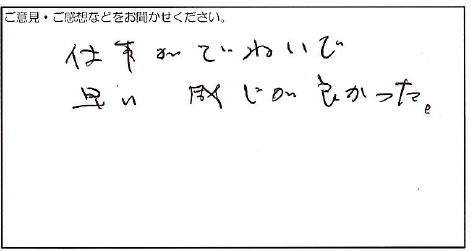 ご意見・ご感想などをお聞かせください。
仕事がていねいで
早い 感じが良かった。